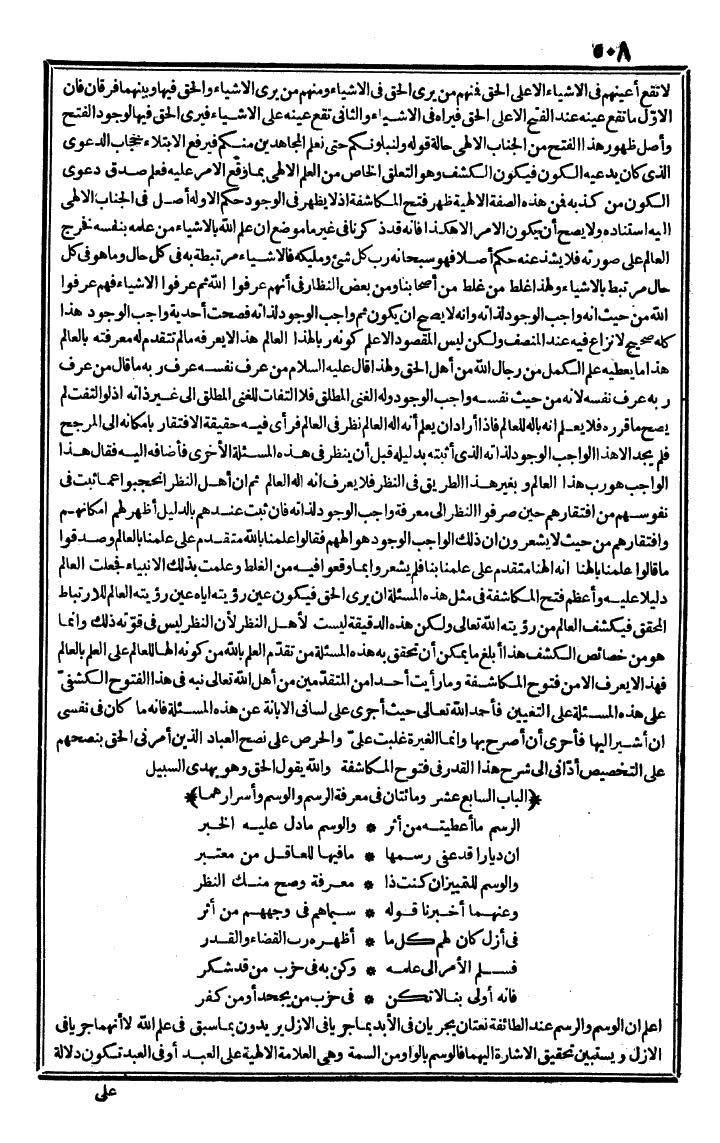 ٥٠٨
لا تقع أعينهم فى الاشياء الا على الحق فمنهم من يرى الحق فى الاشياء ومنهم من يرى الاشياء والحق فيها وبينهما فرقان فان
الاول ما تقع عينه عند الفتح الا على الحق فيراه فى الاشياء والثانى تقع عينه على الاشياء فيرى الحق فيها لوجود الفتح
وأصل ظهور هذا الفتح من الجناب الالهى حالة قوله ولنبلونكم حتى نعلم المجاهدين منكم فيرفع الابتلاء حجاب الدعوى
الذى كان يدعيه الكون فيكون الكشف وهو التعلق الخاص من العلم الالهى بما وقع الامر عليه فعلم صدق دعوى
الكون من كذبه فمن هذه الصفة الالهية ظهر فتح المكاشفة اذ لا يظهر فى الوجود حكم الا وله أصل فى الجناب الالهى
اليه استناده ولا يصح أن يكون الامر الا هكذا فانه قد ذكرنا فى غير ما موضع ان علم الله بالاشياء من علمه بنفسه فخرج
العالم على صورته فلا يشذ عنه حكم أصلا فهو سبحانه رب كل شئ ومليكه فالاشياء مرتبطة به فى كل حال وما هو فى كل
حال مرتبط بالاشياء ولهذا غلط من غلط من أصحابنا ومن بعض النظار فى أنهم عرفوا الله ثم عرفوا الاشياء فهم عرفوا
الله من حيث انه واجب الوجود لذاته وانه لا يصح ان يكون ثم واجب الوجود لذاته فصحت أحدية واجب الوجود هذا
كله صحيح لا نزاع فيه عند المنصف ولكن ليس المقصود الا علم كونه ربا لهذا العالم هذا لا يعرفه ما لم تتقدم له معرفته بالعالم
هذا ما يعطيه علم الكمل من رجال الله من أهل الحق ولهذا قال عليه السلام من عرف نفسه عرف ربه ما قال من عرف
ربه عرف نفسه لانه من حيث نفسه واجب الوجود وله الغنى المطلق فلا التفات للغنى المطلق الى غير ذاته اذ لو التفت لم
يصح ما قرره فلا يعلم انه اله للعالم فاذا أراد ان يعلم أنه اله العالم نظر فى العالم فرأى فيه حقيقة الافتقار بامكانه الى المرجح
فلم يجد الا هذا الواجب الوجود لذاته الذى أثبته بدليله قبل أن ينظر فى هذه المسئلة الأخرى فأضافه اليه فقال هذا
الواجب هو رب هذا العالم و بغير هذا الطريق فى النظر فلا يعرف انه اله العالم ثم ان أهل النظر انحجبوا عما ثبت فى
نفوسهم من افتقارهم حين صرفوا النظر الى معرفة واجب الوجود لذاته فان ثبت عندهم بالدليل أظهر لهم امكانهم
وافتقارهم من حيث لا يشعرون ان ذلك الواجب الوجود هو الههم فقالوا علمنا بالله متقدم على علمنا بالعالم وصدقوا
ما قالوا علمنا بالهنا انه الهنا متقدم على علمنا بنا فلم يشعروا بما وقعوا فيه من الغلط وعلمت بذلك الانبياء فجعلت العالم
دليلا عليه وأعظم فتح المكاشفة فى مثل هذه المسئلة ان يرى الحق فيكون عين رؤيته اياه عين رؤيته العالم للارتباط
المحقق فيكشف العالم من رؤيته الله تعالى ولكن هذه الدقيقة ليست لأهل النظر لأن النظر ليس فى قوته ذلك وانما
هو من خصائص الكشف هذا أبلغ ما يمكن أن تحقق به هذه المسئلة من تقدم العلم بالله من كونه الها للعالم على العلم بالعالم
فهذا لا يعرف الا من فتوح المكاشفة وما رأيت أحدا من المتقدمين من أهل الله تعالى نبه فى هذا الفتوح الكشفى
على هذه المسئلة على التعيين فأحمد الله تعالى حيث أجرى على لسانى الابانة عن هذه المسئلة فانه ما كان فى نفسى
ان أشير اليها فأحرى أن أصرح بها وانما الغيرة غلبت علىّ والحرص على نصح العباد الذين أمرنى الحق بنصحهم
على التخصيص أدّانى الى شرح هذا القدر فى فتوح المكاشفة والله يقول الحق وهو يهدى السبيل
﴿الباب السابع عشر ومائتان فى معرفة الرسم والوسم وأسرارهما﴾
الرسم ما أعطيته من أثر * والوسم ما دل عليه الخبر
ان ديارا قد عفى رسمها * ما فيها للعاقل من معتبر
والوسم للتمييز ان كنت ذا * معرفة وصح منك النظر
وعنهما أخبرنا قوله * سيماهم فى وجههم من أثر
فى أزل كان لهم كل ما * أظهره رب القضاء والقدر
فسلم الأمر الى علمه * وكن به فى حزب من قد شكر
فانه أولى بنا لا تكن * فى حزب من يجحد أو من كفر
اعلم ان الوسم والرسم عند الطائفة نعتان يجريان فى الأبد بما جريا فى الازل يريدون بما سبق فى علم الله لا أنهما جريا فى
الازل ويستبين تحقيق الاشارة اليهما فالوسم بالواو من السمة وهى العلامة الالهية على العبد أو فى العبد تكون دلالة
على